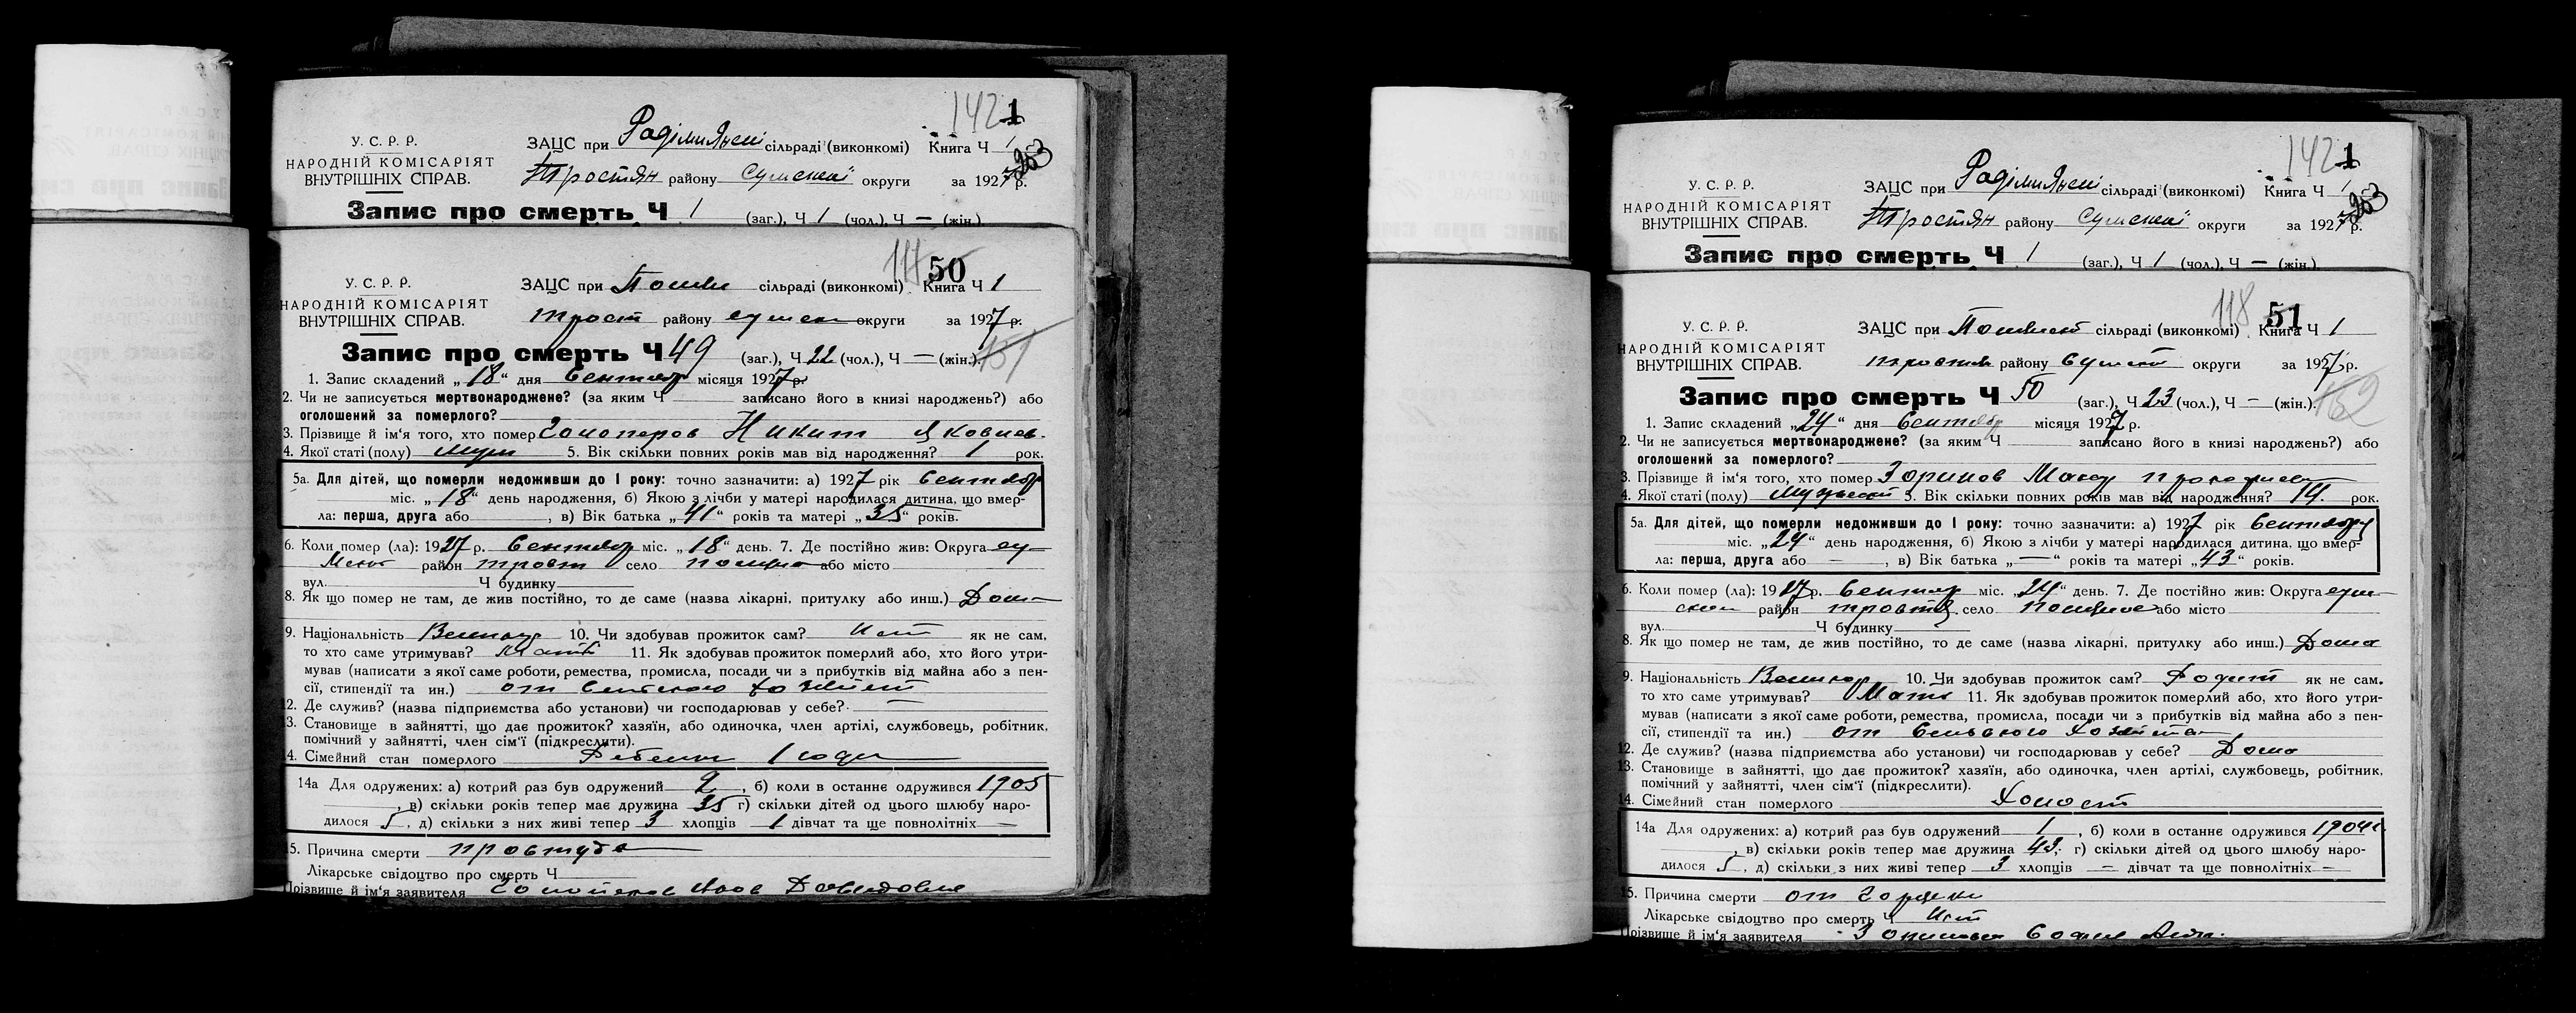 142 1
У. С. Р. Р. ЗАЦС при сільраді (виконкомі) Книга Ч 1
НАРОДНІЙ КОМІСАРІЯТ
ВНУТРІШНІХ СПРАВ. Тростян району Сумської округи за 1927 р. 253
Запис про смерть Ч 1 (заг.), Ч 1 (чол.), Ч — (жін.)
117 50
У. С. Р. Р. ЗАЦС при сільраді (виконкомі) Книга Ч 1
НАРОДНІЙ КОМІСАРІЯТ
ВНУТРІШНІХ СПРАВ. трост району сумск округи за 1927 р.
Запис про смерть Ч 49 (заг.), Ч 22 (чол.), Ч — (жін.) 151
1. Запис складений „18“ дня Сентябр місяця 1927 р.
2. Чи не записується мертвонароджене? (за яким Ч записано його в книзі народжень?) або
оголошений за померлого?
3. Прізвище й ім'я того, хто помер Никит Яковлев.
4. Якої статі (полу) Муж 5. Вік скільки повних років мав від народження? 1 рок.
5а. Для дітей, що померли недоживши до 1 року: точно зазначити: а) 1927 рік Сентябр
міс. „18“ день народження, б) Якою з лічби у матері народилася дитина, що вмер-
ла: перша, друга або , в) Вік батька „41“ років та матері „35“ років.
6. Коли помер (ла): 1927 р. Сентябр міс. „18“ день. 7. Де постійно жив: Округа су-
район трост село або місто
вул. Ч будинку
8. Як що помер не там, де жив постійно, то де саме (назва лікарні, притулку або инш.) Дома
9. Національність Великор 10. Чи здобував прожиток сам? Нет як не сам,
то хто саме утримував? мать 11. Як здобував прожиток померлий або, хто його утри-
мував (написати з якої саме роботи, ремества, промисла, посади чи з прибутків від майна або з пен-
сії, стипендії та ин.) от Сельского Хозяйст
12. Де служив? (назва підприємства або установи) чи господарював у себе? —
13. Становище в зайнятті, що дає прожиток? хазяїн, або одиночка, член артілі, службовець, робітник,
помічний у зайнятті, член сім'ї (підкреслити).
14. Сімейний стан померлого Ребенок 1 года
14а Для одружених: а) котрий раз був одружений 2, б) коли в останнє одружився 1905
, в) скільки років тепер має дружина 35 г) скільки дітей од цього шлюбу наро-
дилося 5, д) скільки з них живі тепер 3 хлопців 1 дівчат та ще повнолітніх —
15. Причина смерти простуда
Лікарське свідоцтво про смерть Ч
Прізвище й ім'я заявителя Давидовна
142 1
У. С. Р. Р. ЗАЦС при сільраді (виконкомі) Книга Ч 1
НАРОДНІЙ КОМІСАРІЯТ
ВНУТРІШНІХ СПРАВ. Тростян району Сумської округи за 1927 р. 253
Запис про смерть Ч 1 (заг.), Ч 1 (чол.), Ч — (жін.)
118 51
У. С. Р. Р. ЗАЦС при сільраді (виконкомі) Книга Ч 1
НАРОДНІЙ КОМІСАРІЯТ
ВНУТРІШНІХ СПРАВ. тростян району Сумск округи за 1927 р.
Запис про смерть Ч 50 (заг.), Ч 23 (чол.), Ч — (жін.) 152
1. Запис складений „24“ дня Сентябр місяця 1927 р.
2. Чи не записується мертвонароджене? (за яким Ч записано його в книзі народжень?) або
оголошений за померлого?
3. Прізвище й ім'я того, хто помер Зоринов
4. Якої статі (полу) Мужской 5. Вік скільки повних років мав від народження? 14. рок.
5а. Для дітей, що померли недоживши до 1 року: точно зазначити: а) 1927 рік Сентября
міс. „24“ день народження, б) Якою з лічби у матері народилася дитина, що вмер-
ла: перша, друга або — , в) Вік батька „—“ років та матері „43“ років.
6. Коли помер (ла): 1927 р. Сентяр міс. „24“ день. 7. Де постійно жив: Округа сум-
ской район тростя село або місто
вул. Ч будинку
8. Як що помер не там, де жив постійно, то де саме (назва лікарні, притулку або инш.) Дома
9. Національність Великор 10. Чи здобував прожиток сам? як не сам,
то хто саме утримував? Мать 11. Як здобував прожиток померлий або, хто його утри-
мував (написати з якої саме роботи, ремества, промисла, посади чи з прибутків від майна або з пен-
сії, стипендії та ин.) от Сельского Хозяйства
12. Де служив? (назва підприємства або установи) чи господарював у себе? Дома
13. Становище в зайнятті, що дає прожиток? хазяїн, або одиночка, член артілі, службовець, робітник,
помічний у зайнятті, член сім'ї (підкреслити).
14. Сімейний стан померлого Холост
14а Для одружених: а) котрий раз був одружений 1, б) коли в останнє одружився 1904
, в) скільки років тепер має дружина 43, г) скільки дітей од цього шлюбу наро-
дилося 5, д) скільки з них живі тепер 3 хлопців — дівчат та ще повнолітніх —
15. Причина смерти от
Лікарське свідоцтво про смерть Ч Нет
Прізвище й ім'я заявителя София